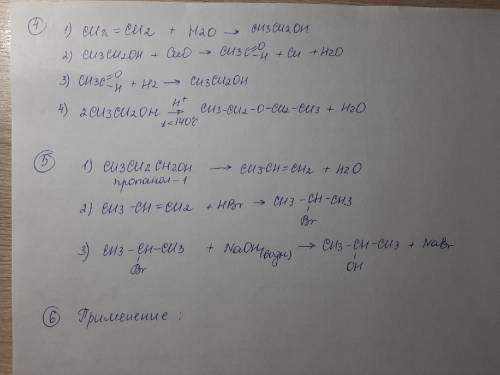 ④ 1) CH2=CH2 + H2O → CH3CH2OH
2) CH3CH2OH + CuO → CH3C=O-H + Cu + H2O
3) CH3C=O-H + H2 → CH3CH2OH
4) 2CH3CH2OH H+ → t<140°C CH3-CH2-O-CH2-CH3 + H2O
⑤ 1) CH3CH2CH2OH → CH3CH=CH2 + H2O
пропанол-1
2) CH3-CH=CH2 + HBr → CH3-CH-CH3
Br
3) CH3-CH-CH3 + NaOH(водн) → CH3-CH-CH3 + NaBr
Br OH
⑥ Применение: